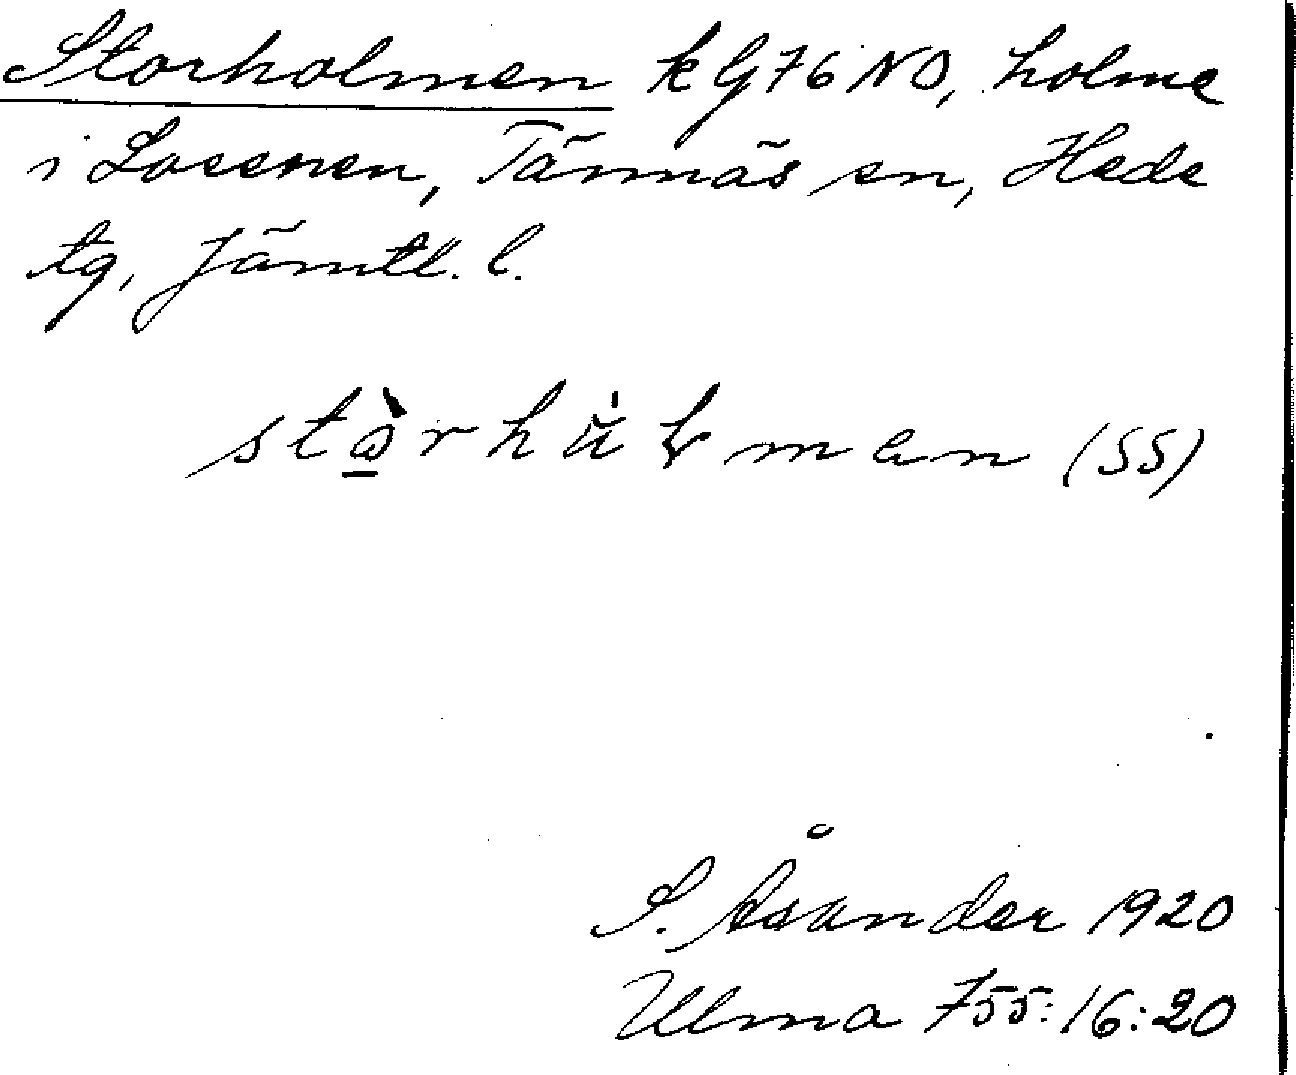 Storholmen k G76 NO, holme
i Lossnen, Tännäs sn, Hede
tg, Jämtl. l.
(SS)
S. Åsander 1920
Ulma 755:16:20